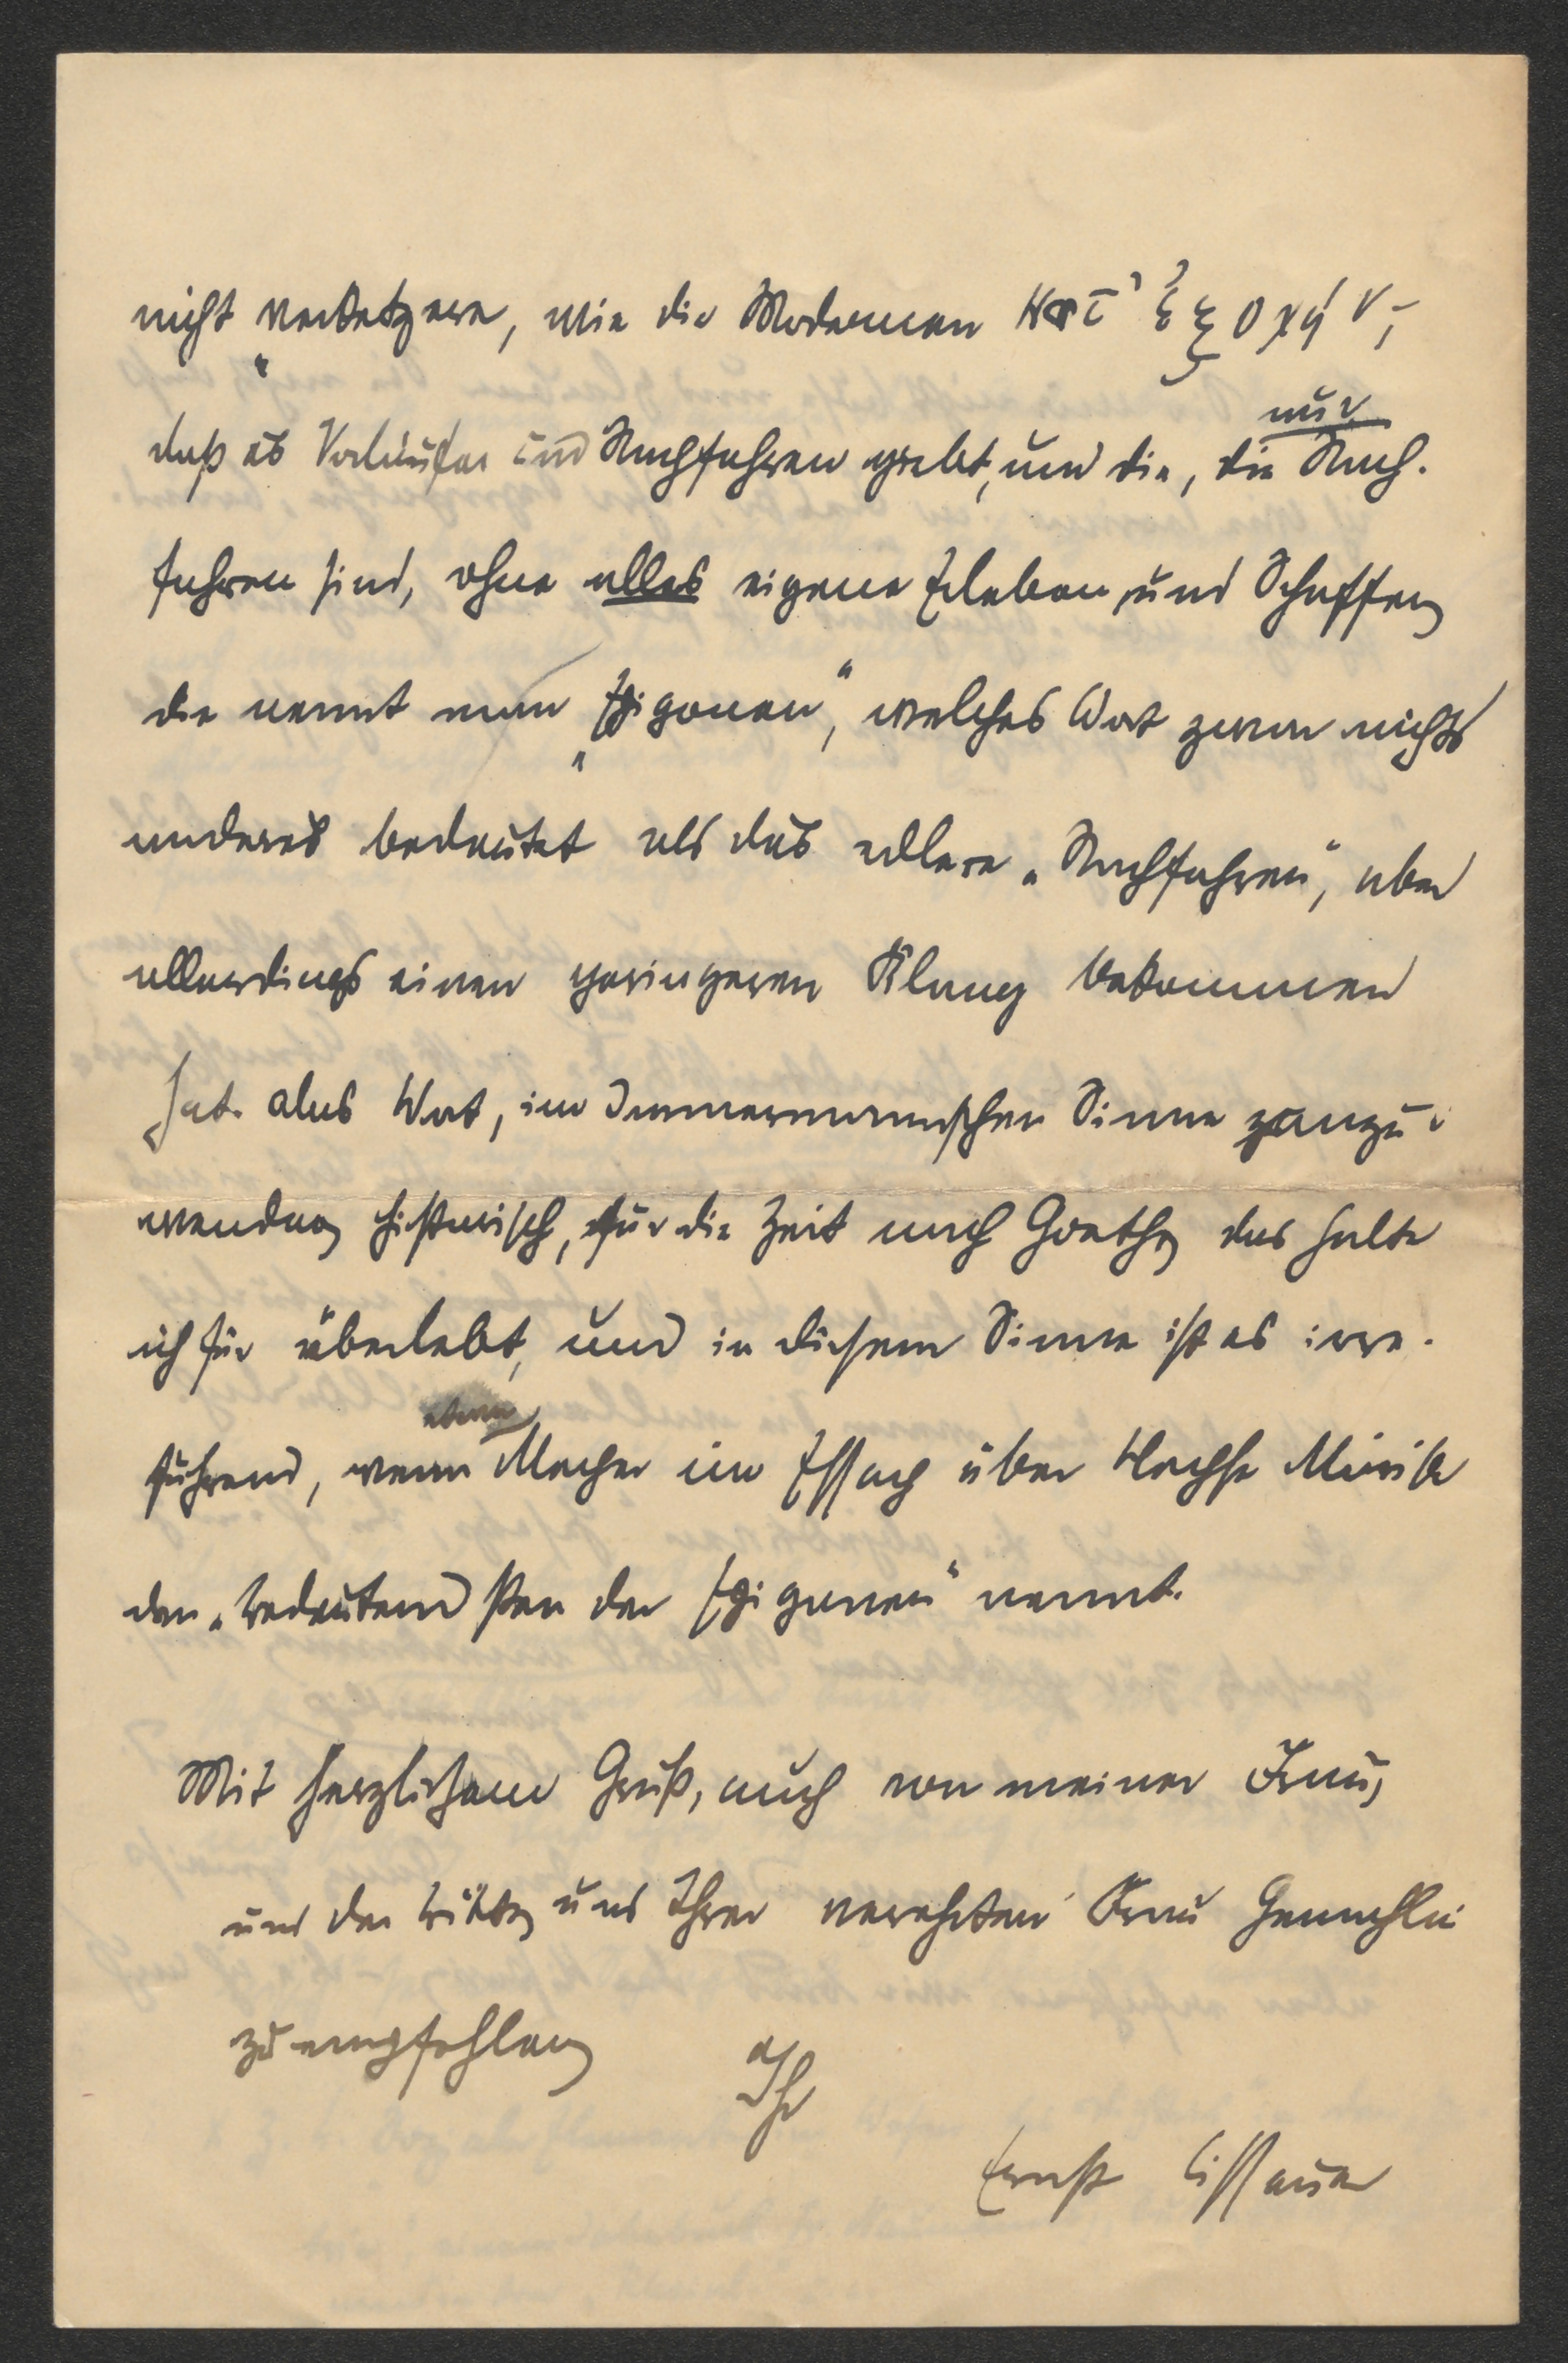 nicht verketzere, wie die Modernen κατ' ἐξοχήν,
daß es Vorläufer und Nachfahren giebt, und die, die nur Nach-
fahren sind, ohne alles eigene Erleben und Schaffen,
die nennt man „Epigonen“, welches Wort zwar nichts
anderes bedeutet als das edlere „Nachfahren“, aber
allerdings einen geringeren Klang bekommen
hat. Das Wort, im Immermannschen Sinne anzu-
wenden, historisch, für die Zeit nach Goethe, das halte
ich für überlebt, und in diesem Sinne ist es irre-
führend, wenn etwa Meyer im Essay über Mörike
den „bedeutendsten der Epigonen“ nennt.
Mit herzlichem Gruß, auch von meiner Frau,
und der Bitte, uns Ihrer verehrten Frau Gemahlin
zu empfehlen,
Ihr
Ernst Lissauer